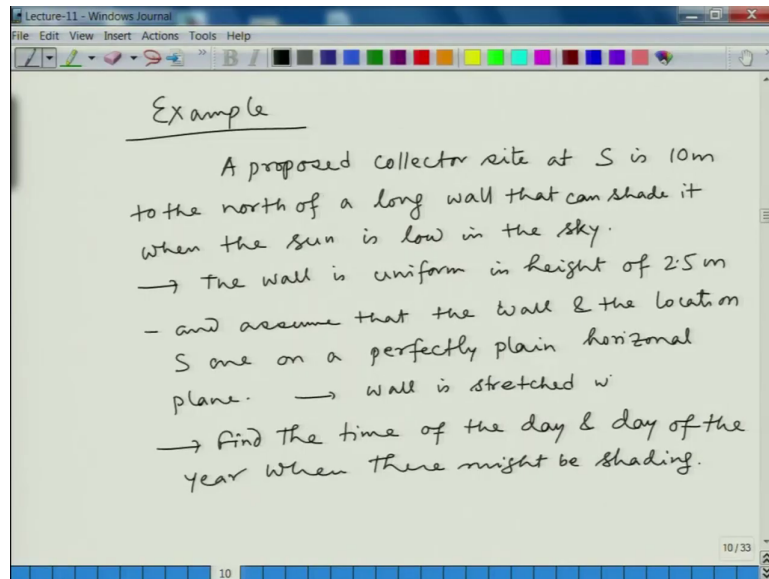 Lecture-11 - Windows Journal
File Edit View Insert Actions Tools Help
B I
Example
A proposed collector site at S is 10m
to the north of a long wall that can shade it
when the sun is low in the sky.
→ The wall is uniform in height of 2.5 m
- and assume that the wall & the location
S are on a perfectly plain horizonal
plane. → wall is stretched w
→ Find the time of the day & day of the
year when there might be shading.
10/33
10